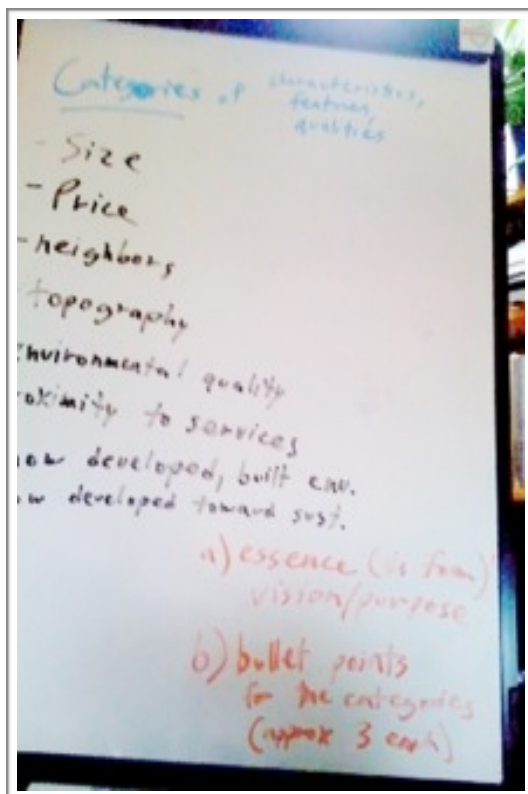 Categories of characteristics,
features,
qualities
- Size
- Price
- neighbors
topography
nvironmental quality
roximity to services
ow developed, built env.
w developed toward sust.
a) essence (is form)
vision/purpose
b) bullet points
for the categories
(approx 3 each)